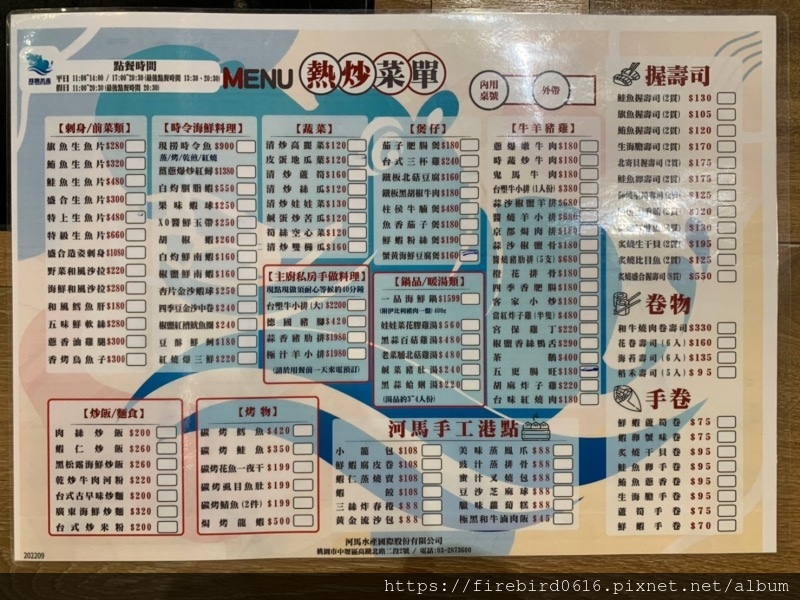 點餐時間
平日 11:00~14:00 / 17:00~20:30 (最後點餐時間 13:30、20:30)
假日 11:00~20:30 (最後點餐時間 20:30)
MENU 熱炒菜單
內用桌號
外帶
【刺身/前菜類】
旗魚生魚片$280
鮪魚生魚片$320
鮭魚生魚片$480
盛合生魚片$300
特上生魚片$480
特級生魚片$660
盛合造姿刺身$1080
野菜和風沙拉$220
海鮮和風沙拉$280
和風鱈魚肝$180
五味鮮軟絲$280
蔥香油雞腿$300
香烤烏魚子$300
【時令海鮮料理】
現撈時令魚$900
蒸/烤/乾煎/紅燒
薑蔥爆炒紅蟳$1380
白灼胭脂蝦$550
果味蝦球$250
XO醬鮮玉帶$250
胡椒蝦$260
白灼鮮南蝦$160
椒鹽鮮南蝦$160
杏片金沙蝦球$250
四季豆金沙中卷$240
椒鹽紅槽魷魚圈$240
豆酥鮮蚵$180
紅燒爆三鮮$220
【蔬菜】
清炒高麗菜$120
皮蛋地瓜葉$120
清炒蘆筍$160
清炒絲瓜$120
清炒娃娃菜$130
鹹蛋炒苦瓜$120
筍絲空心菜$120
清炒雙椒瓜$160
【主廚私房手做料理】
現點現做須耐心等候約40分鐘
台塑牛小排(大)$2200
德國豬腳$420
蒜香豬肋排$1980
極汁羊小排$1980
(請於用餐前一天來電預訂)
【煲仔】
茄子肥腸煲$180
台式三杯雞$240
鐵板北菇豆腐$160
鐵板黑胡椒牛肉$180
柱侯牛腩煲$480
魚香茄子煲$180
鮮蝦粉絲煲$190
蟹黃海鮮豆腐煲$160
【鍋品/暖湯類】
一品海鮮鍋$1599
(附伊比利豬肉一盤) 400g
娃娃菜花膠雞湯$560
黑蒜百菇雞湯$480
老菜脯北菇雞湯$480
鹹菜豬肚湯$480
黑蒜蛤蜊湯$220
(湯品約3~4人份)
【牛羊豬雞】
蔥爆嫩牛肉$180
時蔬炒牛肉$180
鬼馬牛肉$180
台塑牛小排(1人份)$380
蒜沙椒鹽羊排$680
醬燒羊小排$680
京都焗肉排$180
蒜沙椒鹽骨$180
醬燒豬肋排(5支)$680
橙花排骨$180
四季香肥腸$180
客家小炒$180
當紅炸子雞(半隻)$480
宮保雞丁$220
椒鹽香絲鴨舌$290
茶鵝$400
五更腸旺$180
胡麻炸子雞$220
台味紅燒肉$180
握壽司
鮭魚握壽司(2貫)$130
旗魚握壽司(2貫)$105
鮪魚握壽司(2貫)$120
生海膽壽司(2貫)$170
北寄貝握壽司(2貫)$175
鮭魚卵壽司(2貫)$175
炙燒生干貝(2貫)$195
炙燒比目魚(2貫)$125
炙燒盛合握壽司(8貫)$550
卷物
和牛燒肉卷壽司$330
花卷壽司(6入)$160
海苔壽司(6入)$135
稻禾壽司(5入)$95
手卷
鮮蝦蘆筍卷$75
蝦卵蟹味卷$75
炙燒干貝卷$95
鮭魚卵手卷$95
鮪魚蔥香卷$95
生海膽手卷$95
蘆筍手卷$75
鮮蝦手卷$70
【炒飯/麵食】
肉絲炒飯$200
蝦仁炒飯$260
黑松露海鮮炒飯$260
乾炒牛肉河粉$220
台式古早味炒麵$200
廣東海鮮炒麵$320
台式炒米粉$200
【烤物】
碳烤鱈魚$420
碳烤鮭魚$350
碳烤花魚一夜干$199
碳烤虱目魚肚$199
碳烤鯖魚(2件)$199
焗烤龍蝦$500
河馬手工港點
小籠包$108
鮮蝦腐皮卷$108
蝦仁蒸燒賣$108
蝦餃$108
三絲炸春捲$88
黃金流沙包$88
美味蒸鳳爪$88
豉汁蒸排骨$88
蜜汁叉燒包$88
豆沙芝麻球$88
臘味蘿蔔糕$88
極黑和牛滷肉飯$45
河馬水產國際股份有限公司
桃園市中壢區高鐵北路二段2號 / 電話:03-2873600
202209
https://firebird0616.pixnet.net/album